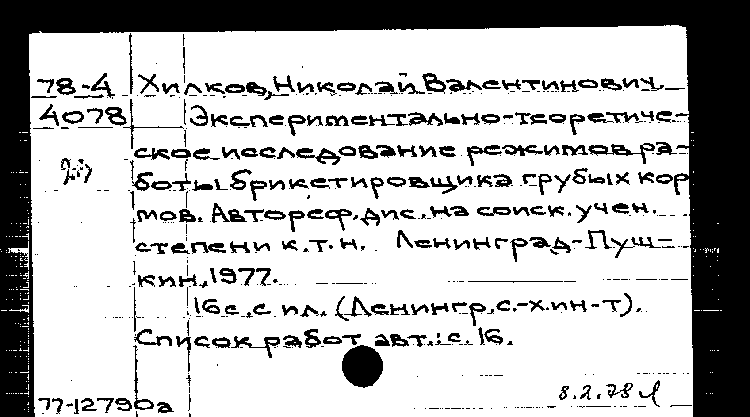 78-4 Хилков, Николай Валентинович.
4078 Экспериментально-теоретиче-
ское исследование режимов ра-
боты брикетировщика грубых кор
мов. Автореф. дис. на соиск. учен.
степени к.т.н. Ленинград-Пуш-
кин, 1977.
16 с. с ил. (Ленингр. с.-х. ин-т).
Список работ авт.: с. 16.
8.2.78
77-12790а